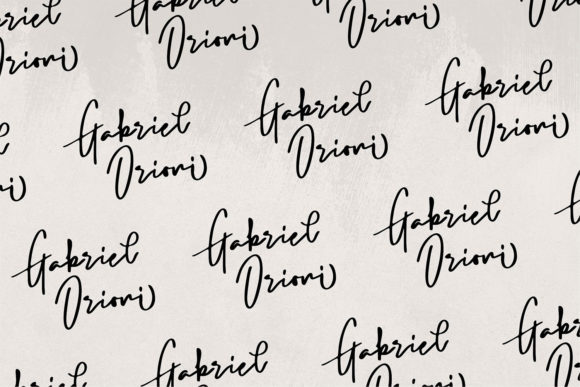 Gabriel
Drioni
Drioni
Gabriel
Drioni
Gabriel
Drioni
Gabriel
Drioni
Gabriel
Drioni
Gabriel
Drioni
Gabriel
Drioni
Gabriel
Gabriel
Drioni